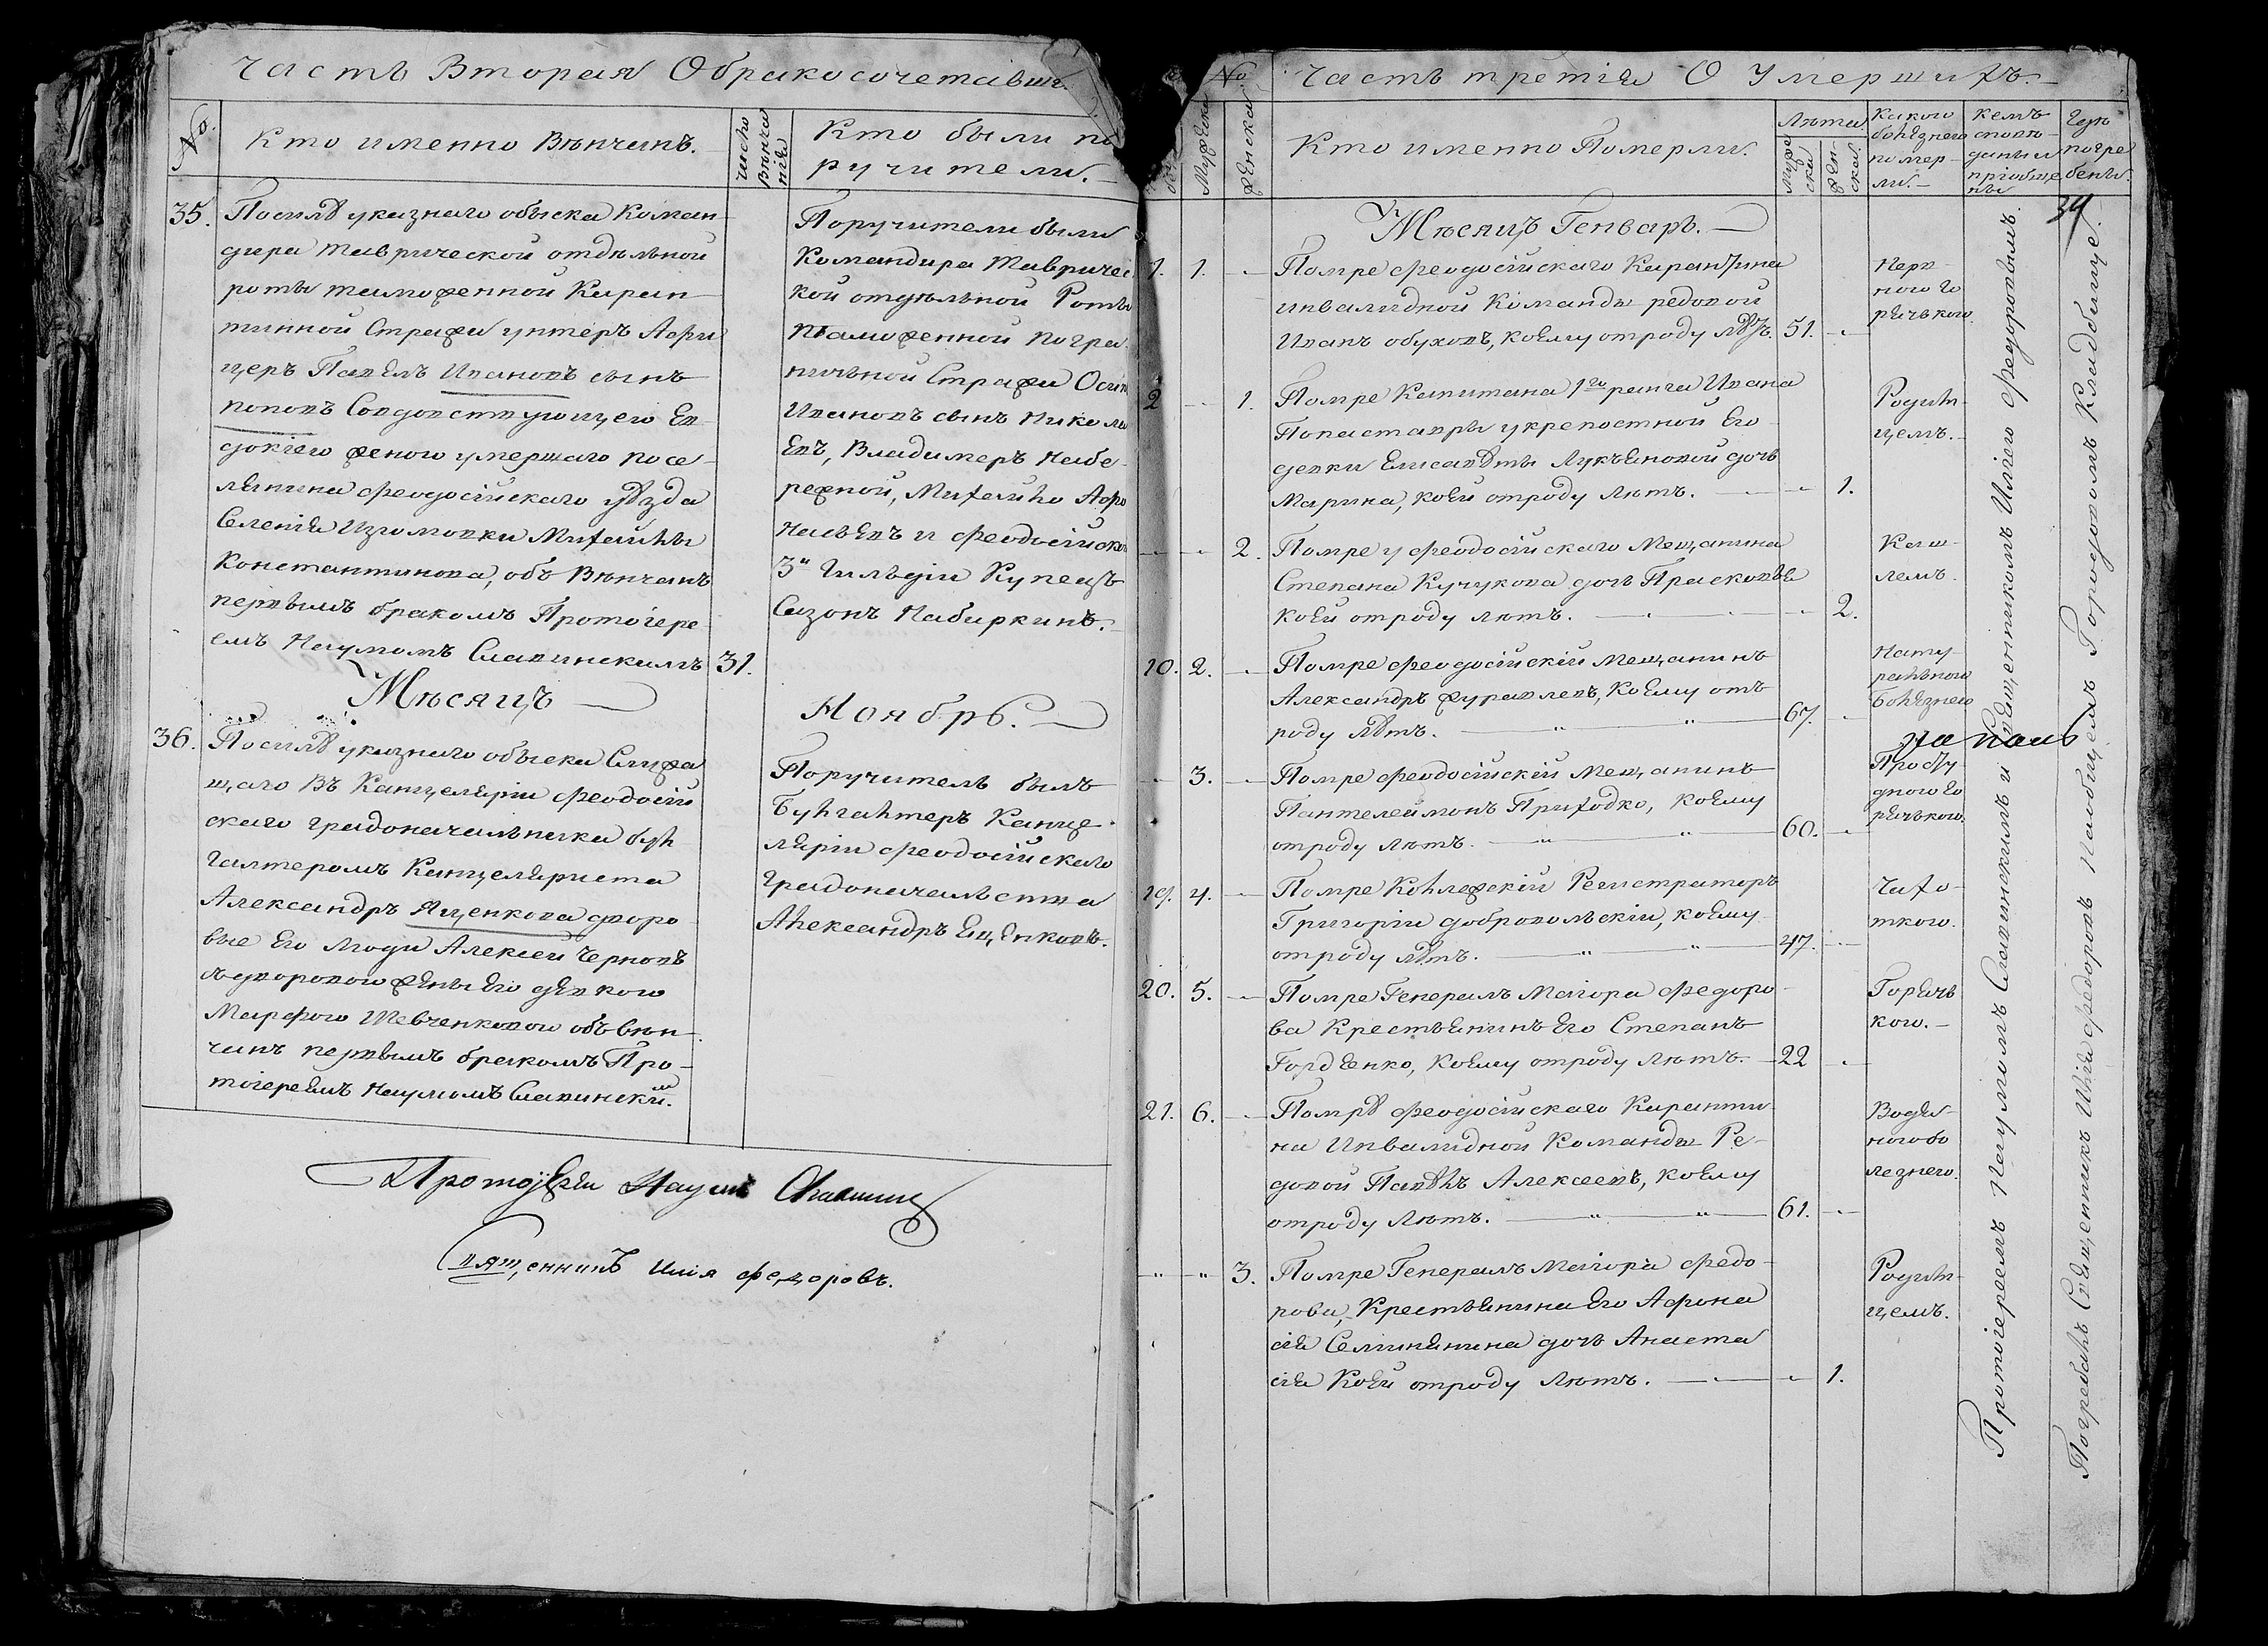 Часть Вторая О бракосочетавш
№
Кто именно Вѣнчанъ.
число Вѣнча нія
Кто были по
ручители.
35.
По силѣ указнаго обыска Коман
дира таврической отдѣльной
роты таможенной Каран
тинной Стражи унтеръ Афи
церъ Павелъ Ивановъ сынъ
поповъ Совдовствующею Ев
докіею женою умершаго посе
лянина феодосійскаго уѣзда
Селенія Изюмовки Михайлы
Константинова, объ Вѣнчанъ
первымъ бракомъ Протоіере
емъ Наумомъ Славинскимъ
31.
Поручители были
Командира Тавричес
кой отдѣльной Роты
таможенной погра
ничьной Стражи Осип
Ивановъ сынъ Никола
Евъ, Владимеръ Набе
режной, Михайло Афо
насьевъ и феодосійской
3й Гильдіи Купецъ
Сазонъ Набиркинъ.
Мѣсяцъ
Ноябрь.
36.
По силѣ указнаго обыска Служа
щаго Въ Канцеляріи феодосій
скаго градоначальника бух
галтеромъ Канцеляриста
Александръ Яценкова дворо
вые Его люди Алексей Черновъ
здворовою жены Его девкою
Марфою Шевченковою объвѣн
чанъ первымъ бракомъ Про
тоіереемъ Наумомъ Славинскимъ.
Поручитель былъ
Бухгалтеръ Канце
ляріи феодосійскаго
Градоначальства
Александръ Яценковъ.
Протоіерей Наумъ Славинс
Священникъ Илія федоровъ.
№
Часть третія О Умершихъ.
Мужска
Женска
Кто именно Померли.
Лѣта
Мужес ска
Жен ска
Какою
болѣзнею
помер
ли.
Кемъ
исповѣ
даны и
пріобще
ны
Где
погре
бены.
34
Мѣсяцъ Генварь.
1. 1.
Помре феодосійскаго Карантина
инвалидной Команды редовой
Иванъ обуховъ, коему отроду лѣтъ. 51.
Нерв
ною го
рячькою.
2 1.
Помре Капитана 1го ранга Ивана
Папаставры укрепостной Его
девки Елисаветы Лукъяновой дочь
Марина, коей отроду лѣтъ. 1.
Родим
цемъ.
2.
Помре у феодосійскаго Мещанина
Степана Кучукова дочь Прасковья
коей отроду лѣтъ. 2.
Каш
лемъ.
10. 2.
Помре феодосійскій мещанинъ
Александръ журавлевъ, коему отъ
роду лѣтъ. 67.
Нату
ральною
болѣзнею
3.
Помре феодосійскій мещанинъ
Пантелеймонъ Приходко, коему
отроду лѣтъ. 60.
Просту
дною го
рячькою.
19. 4.
Помре Колежскій Регистраторъ
Григорій добровольскій, коему
отроду лѣтъ. 47.
Чахо
ткою.
20. 5.
Помре Генералъ Маіора Федоро
ва Крестьянинъ Его Степанъ
Гордѣенко, коему отроду лѣтъ. 22
Горячь
кою.
21. 6.
Помрѣ феодосійскаго Каранти
на Инвалидной Команды Ре
довой Павѣлъ Алексеевъ, коему
отроду лѣтъ. 61.
Водян
ною бо
лезнею.
3.
Помре Генералъ Маіора Федо
рова, Крестьянина Его Афона
сія Семинянина дочь Анаста
сія коей отроду лѣтъ. 1.
Родим
цемъ.
Протоіереемъ Наумомъ Славинскимъ и Священникомъ Иліею Федоровымъ.
Погребалъ Священникъ Илія Федоровъ наобщемъ Городовомъ Кладбище.